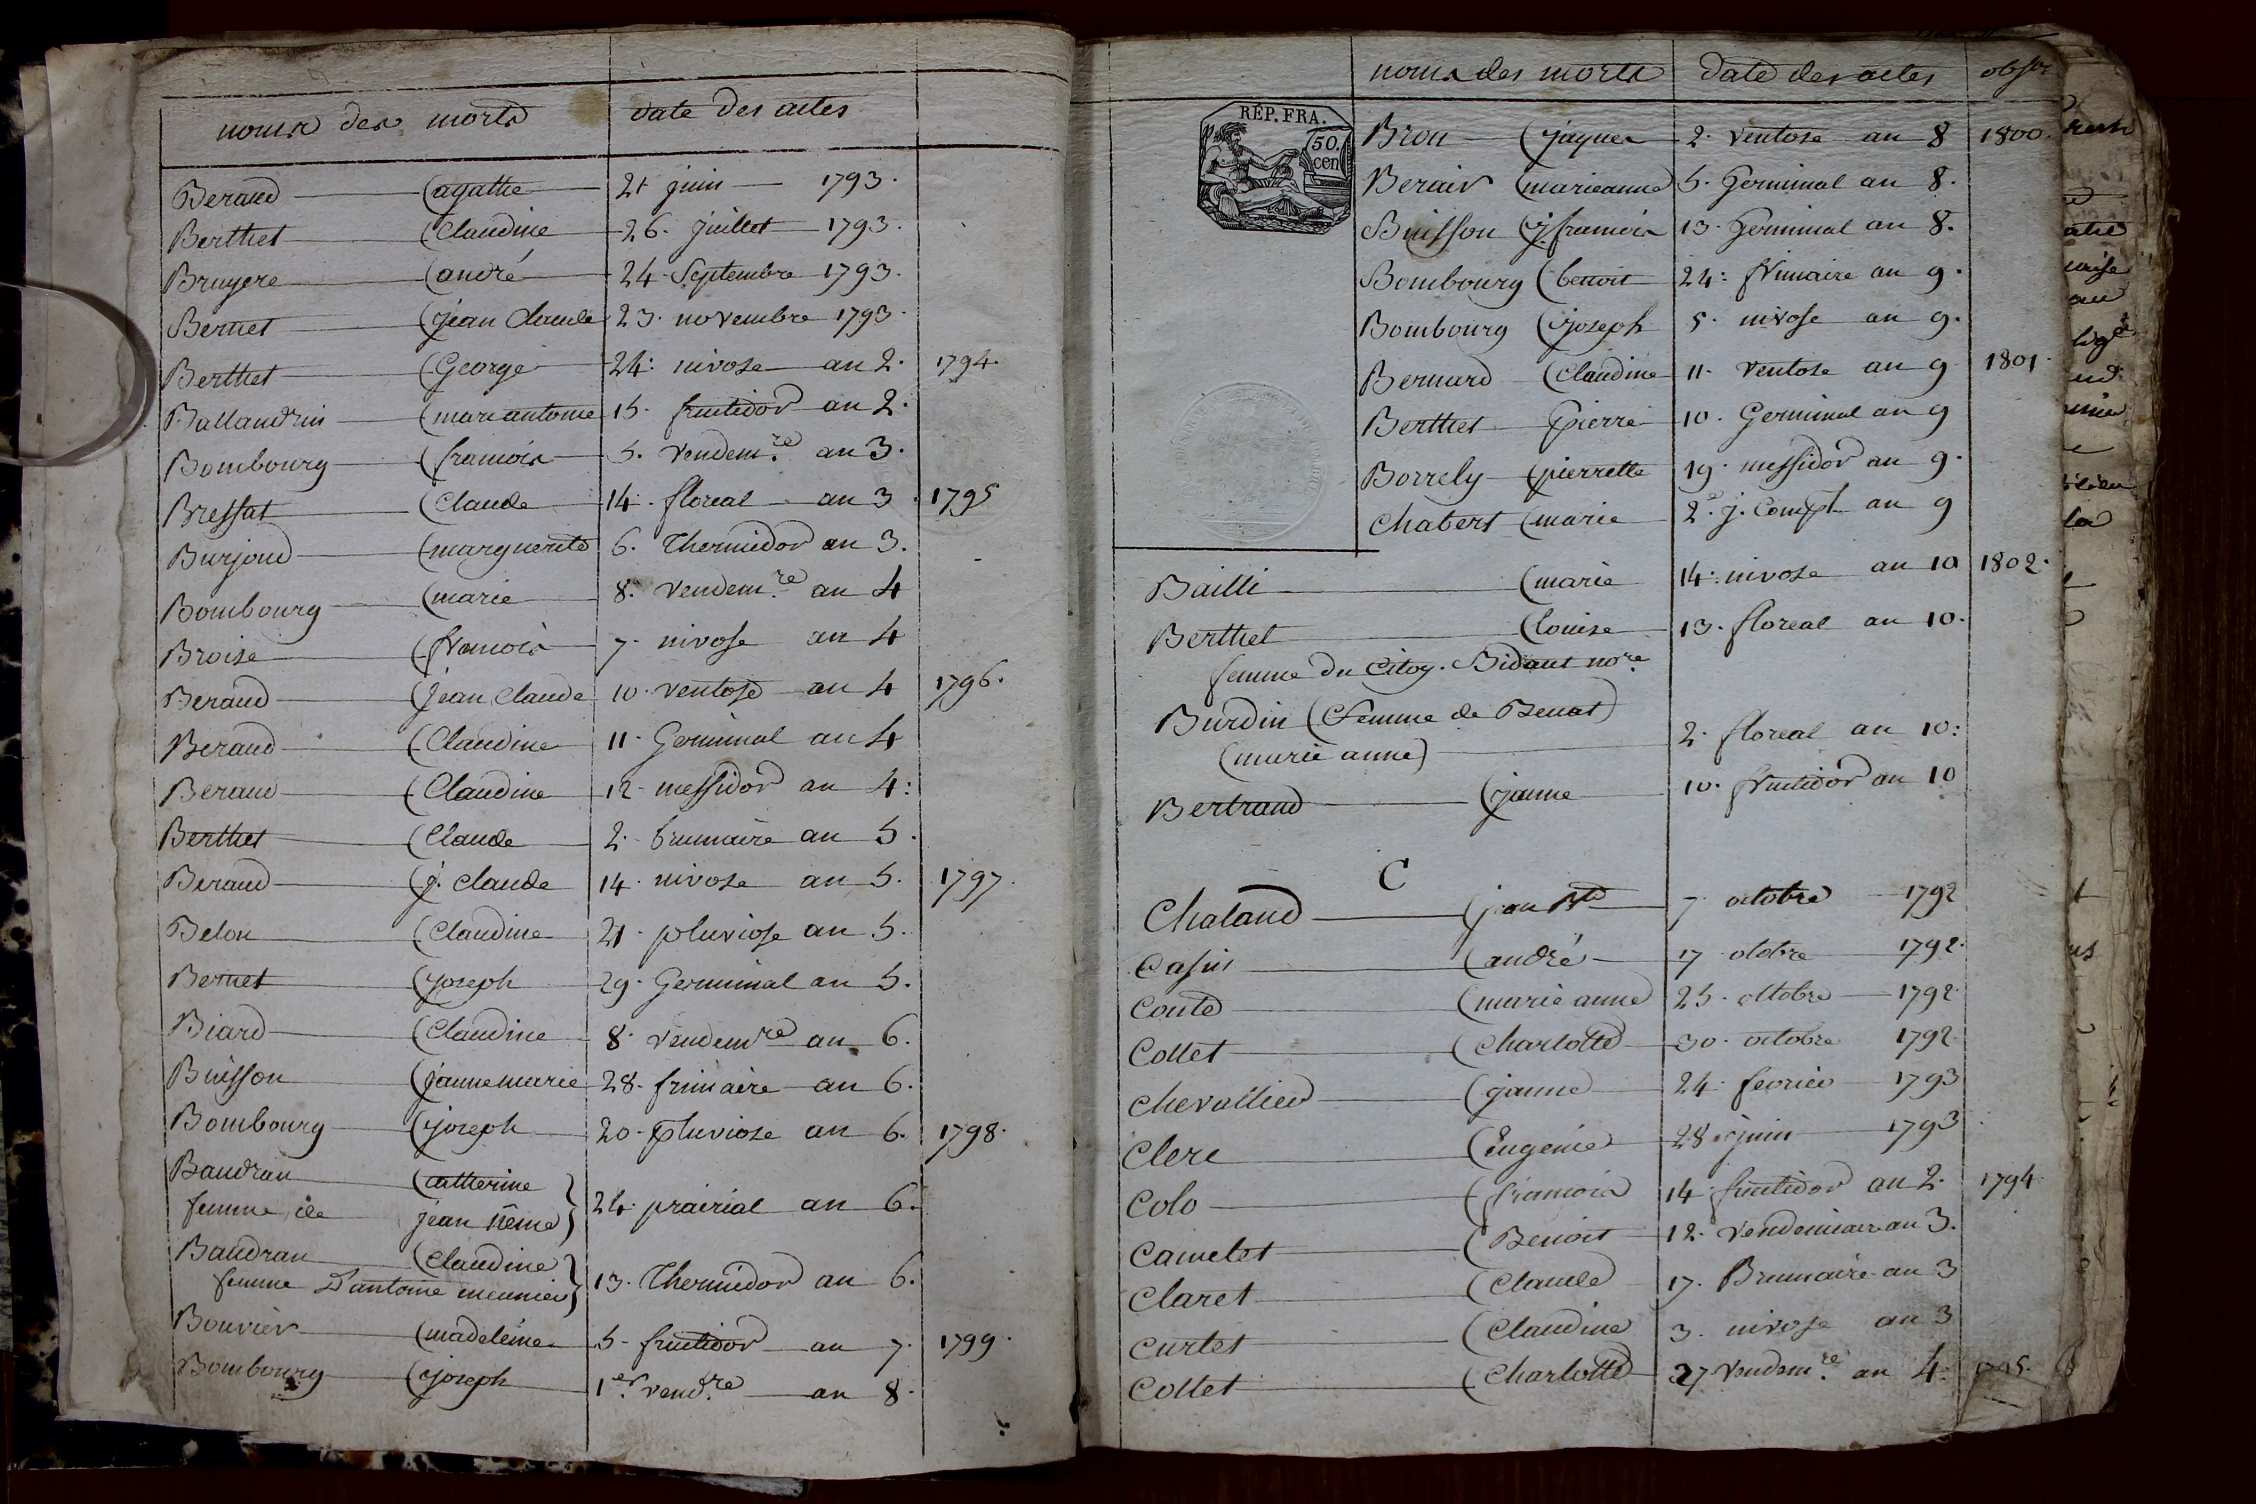 noms des morts date des actes
Beraud (agathe 21 juin 1793.
Berthet (Claudine 26. juillet 1793.
Bruyere (andré 24. Septembre 1793.
Bernet (jean Claude 23. novembre 1793.
Berthet (George 24. nivose an 2. 1794.
Ballandrin (marc antoine 15. fructidor an 2.
Bombourg (francois 5. vendem.re an 3.
Bressat (Claude 14. floreal an 3. 1795
Burjoud (marguerite 6. Thermidor an 3.
Bombourg (marie 8. vendem.re an 4
Broise (francois 7. nivose an 4
Beraud (jean Claude 10. ventose an 4 1796.
Beraud (Claudine 11. Germinal an 4
Beraud (Claudine 12. messidor an 4.
Berthet (Claude 2. brumaire an 5.
Beraud (j. Claude 14. nivose an 5. 1797.
Belon (Claudine 21. pluviose an 5.
Bernet (joseph 29. Germinal an 5.
Biard (Claudine 8. vendemre an 6.
Buisson (janne marie 28. frimaire an 6.
Bombourg (joseph 20. pluviose an 6. 1798.
Baudran (catherine
femme de jean } 24. prairial an 6.
Baudran (Claudine
femme D'antoine meunier } 13. Thermidor an 6.
Bouvier (madeleine 5. fructidor an 7. 1799.
Bombourg (joseph 1er. vend.re an 8.
noms des morts date des actes obser
RÉP. FRA.
50.
cen
Bron (jaques 2. ventose an 8 1800.
(marieanne 5. Germinal an 8.
Buisson (j. francois 13. Germinal an 8.
Bombourg (benoit 24. frimaire an 9.
Bombourg (joseph 5. nivose an 9.
Bernard (Claudine 11. ventose an 9 1801.
Berthet (pierre 10. Germinal an 9
Borrely (pierrette 19. messidor an 9.
Chabert (marie 2.e j. Compl. an 9
Bailli (marie 14. nivose an 10 1802.
Berthet (louise 13. floreal an 10.
femme du Citoy. Bidaut nore.
Burdin (femme de Benat)
(marie anne) 2. floreal an 10.
Bertrand (janne 10. fructidor an 10
C
Chaland (jean Bte 7. octobre 1792
(andré 17 octobre 1792.
Coute (marie anne 25. octobre 1792.
Collet (Charlotte 30. octobre 1792.
Chevallier (janne 24. fevrier 1793
Clerc (Eugenie 28. juin 1793
Colo (francois 14. fructidor an 2. 1794
Camelet (Benoit 12. vendemiaire an 3.
Claret (Claude 17. Brumaire an 3
Curtet (Claudine 3. nivose an 3
Collet (Charlotte 27 vendem.re an 4. 1795.